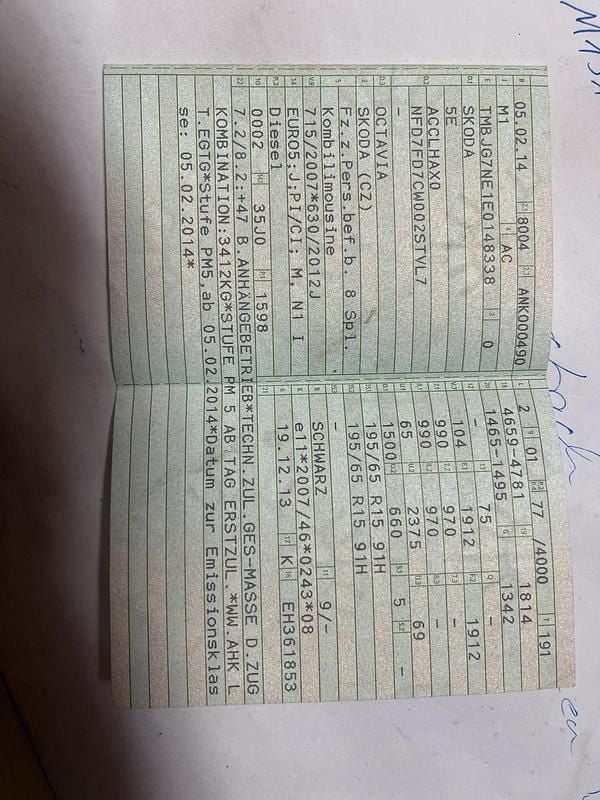 B 05.02.14 2.1 8004 2.2 ANK000490
J M1 4 AC
E TMBJG7NE1E0148338 3 0
D.1 SKODA
5E
D.2 ACCLHAX0
NFD7FD7CW002STVL7
-
D.3 OCTAVIA
2 SKODA (CZ)
5 Fz.z.Pers.bef.b. 8 Spl.
Kombilimousine
V.9 715/2007*630/2012J
14 EURO5;J;PI/CI; M, N1 I
P.3 Diesel
10 0002 14.1 35J0 P.1 1598
L 2 9 01 P.2 P.4 77 /4000 T 191
18 4659-4781 19 1814
20 1465-1495 G 1342
12 - 13 75 Q -
V.7 104 F.1 1912 F.2 1912
7.1 990 7.2 970 7.3 -
8.1 990 8.2 970 8.3 -
U.1 65 U.2 2375 U.3 69
O.1 1500 O.2 660 S.1 5 S.2 -
15.1 195/65 R15 91H
15.2 195/65 R15 91H
15.3 -
R SCHWARZ 11 9/-
K e11*2007/46*0243*08
6 19.12.13 17 K 16 EH361853
21
22 7.2/8.2:+47 B.ANHÄNGEBETRIEB*TECHN.ZUL.GES-MASSE D.ZUG
KOMBINATION:3412KG*STUFE PM 5 AB TAG ERSTZUL.*WW.AHK L
T.EGTG*Stufe PM5,ab 05.02.2014*Datum zur Emissionsklas
se: 05.02.2014*